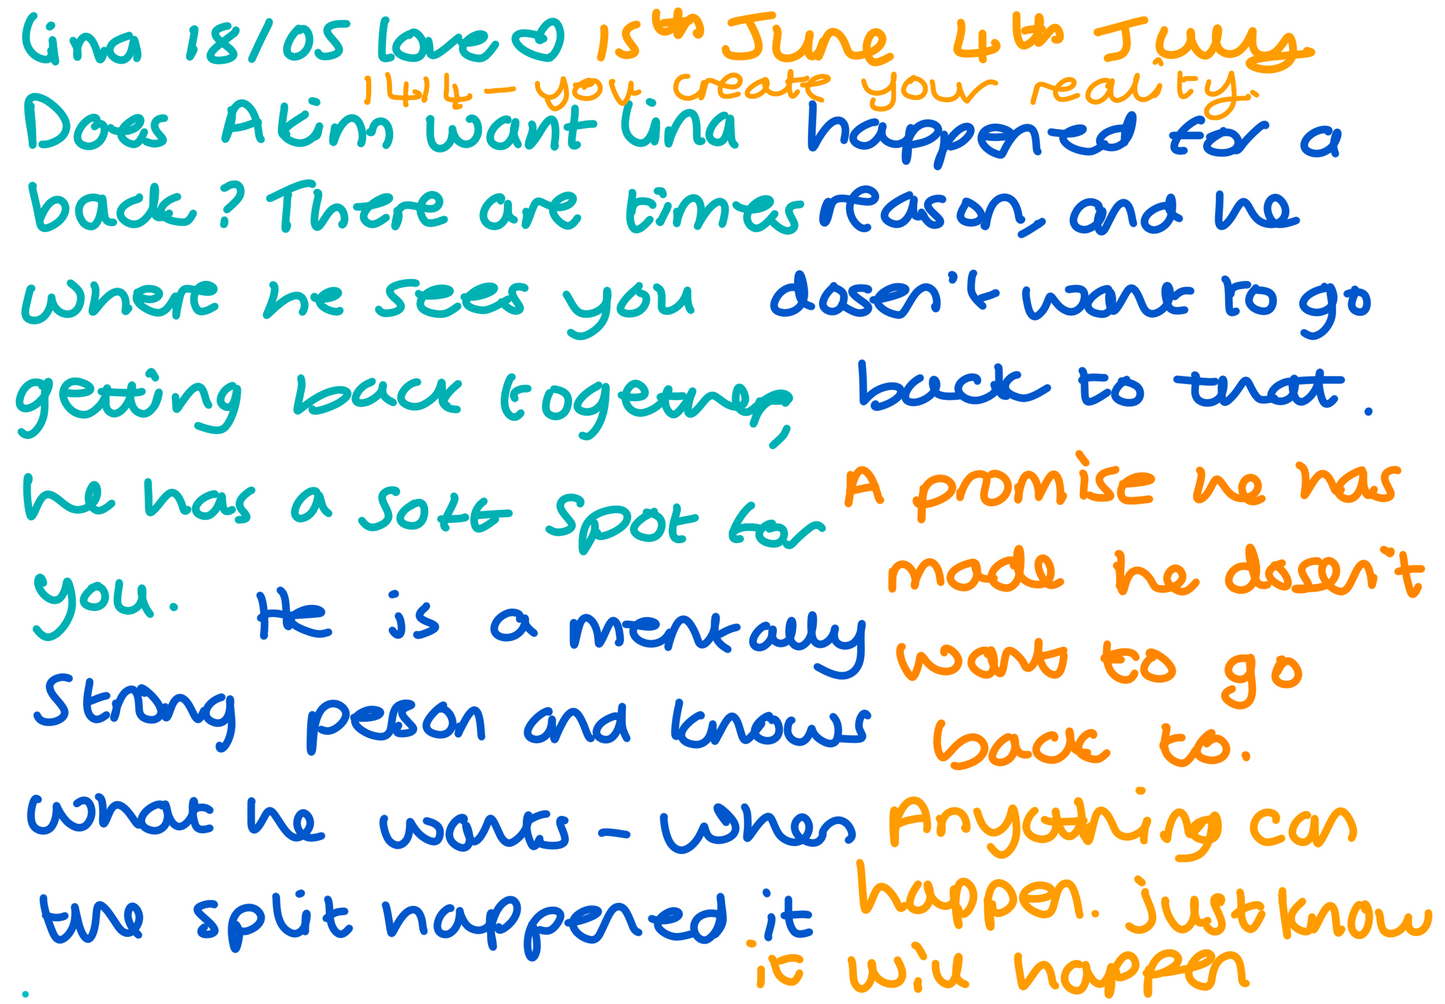 Lina 18/05 love ♡ 15th June 4th July
1414 - you create your reality.
Does Akim want Lina
back? There are times
where he sees you
getting back together,
he has a soft spot for
you. He is a mentally
strong person and knows
what he wants - when
the split happened it
happened for a
reason, and he
dosen't want to go
back to that.
A promise he has
made he dosen't
want to go
back to.
Anything can
happen. just know
it will happen